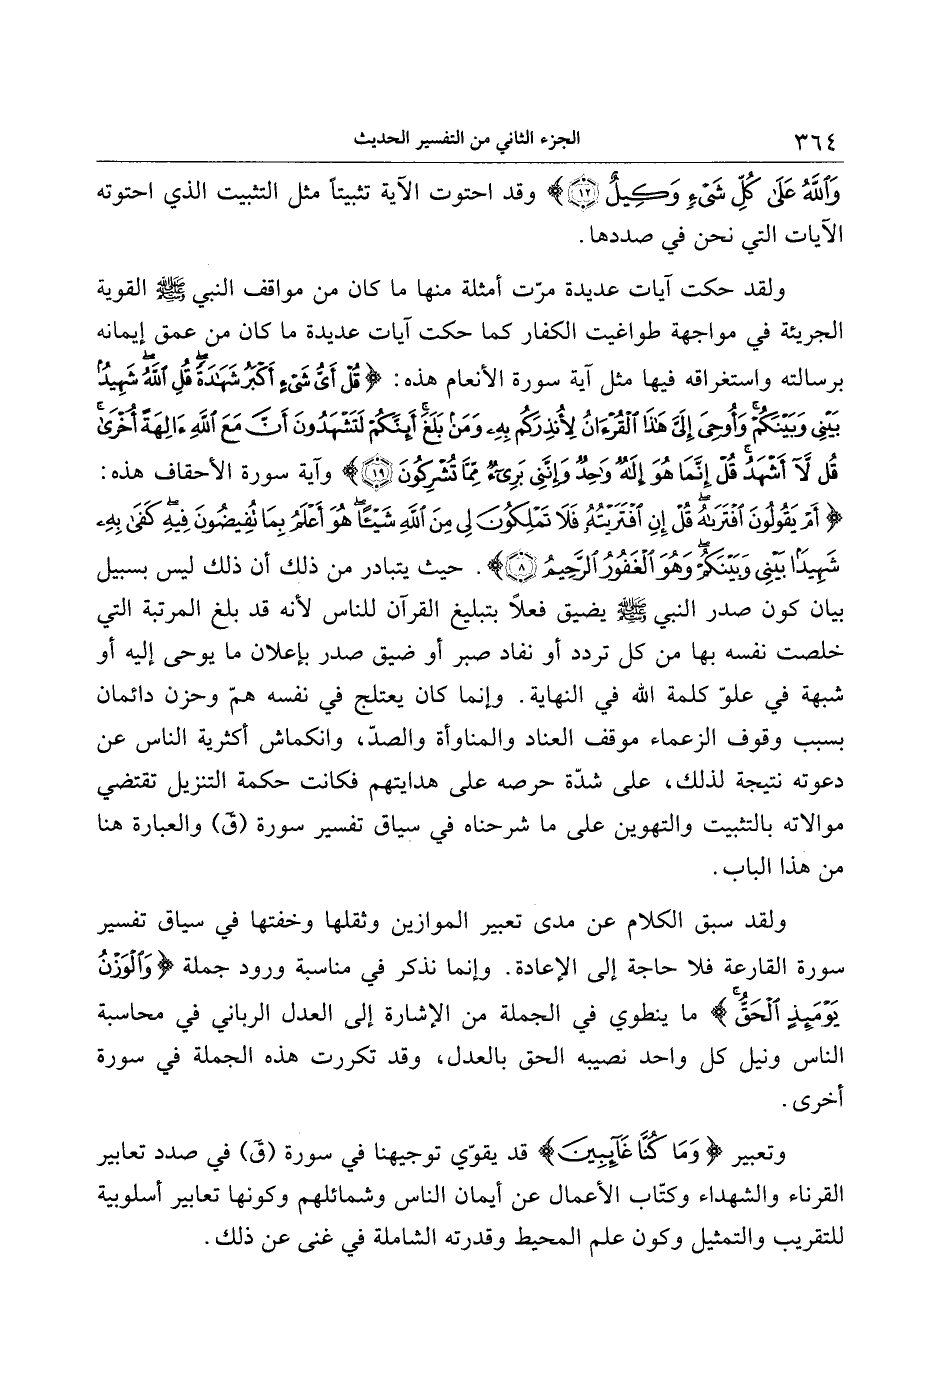 ٣٦٤ الجزء الثاني من التفسير الحديث
وَٱللَّهُ عَلَىٰ كُلِّ شَىْءٍ وَكِيلٌ ۝١٢﴾ وقد احتوت الآية تثبيتاً مثل التثبيت الذي احتوته
الآيات التي نحن في صددها.
ولقد حكت آيات عديدة مرّت أمثلة منها ما كان من مواقف النبي ﷺ القوية
الجريئة في مواجهة طواغيت الكفار كما حكت آيات عديدة ما كان من عمق إيمانه
برسالته واستغراقه فيها مثل آية سورة الأنعام هذه: ﴿قُلْ أَىُّ شَىْءٍ أَكْبَرُ شَهَٰدَةًۖ قُلِ ٱللَّهُۖ شَهِيدٌۢ
بَيْنِى وَبَيْنَكُمْۚ وَأُوحِىَ إِلَىَّ هَٰذَا ٱلْقُرْءَانُ لِأُنذِرَكُم بِهِۦ وَمَنۢ بَلَغَۚ أَئِنَّكُمْ لَتَشْهَدُونَ أَنَّ مَعَ ٱللَّهِ ءَالِهَةً أُخْرَىٰۚ
قُل لَّآ أَشْهَدُۚ قُلْ إِنَّمَا هُوَ إِلَٰهٌ وَٰحِدٌ وَإِنَّنِى بَرِىٓءٌ مِّمَّا تُشْرِكُونَ ۝١٩﴾ وآية سورة الأحقاف هذه:
﴿أَمْ يَقُولُونَ ٱفْتَرَىٰهُۖ قُلْ إِنِ ٱفْتَرَيْتُهُۥ فَلَا تَمْلِكُونَ لِى مِنَ ٱللَّهِ شَيْـًٔاۖ هُوَ أَعْلَمُ بِمَا تُفِيضُونَ فِيهِۖ كَفَىٰ بِهِۦ
شَهِيدًۢا بَيْنِى وَبَيْنَكُمْۖ وَهُوَ ٱلْغَفُورُ ٱلرَّحِيمُ ۝٨﴾. حيث يتبادر من ذلك أن ذلك ليس بسبيل
بيان كون صدر النبي ﷺ يضيق فعلاً بتبليغ القرآن للناس لأنه قد بلغ المرتبة التي
خلصت نفسه بها من كل تردد أو نفاد صبر أو ضيق صدر بإعلان ما يوحى إليه أو
شبهة في علوّ كلمة الله في النهاية. وإنما كان يعتلج في نفسه همّ وحزن دائمان
بسبب وقوف الزعماء موقف العناد والمناوأة والصدّ، وانكماش أكثرية الناس عن
دعوته نتيجة لذلك، على شدّة حرصه على هدايتهم فكانت حكمة التنزيل تقتضي
موالاته بالتثبيت والتهوين على ما شرحناه في سياق تفسير سورة (قۤ) والعبارة هنا
من هذا الباب.
ولقد سبق الكلام عن مدى تعبير الموازين وثقلها وخفتها في سياق تفسير
سورة القارعة فلا حاجة إلى الإعادة. وإنما نذكر في مناسبة ورود جملة ﴿وَٱلْوَزْنُ
يَوْمَئِذٍ ٱلْحَقُّۚ﴾ ما ينطوي في الجملة من الإشارة إلى العدل الرباني في محاسبة
الناس ونيل كل واحد نصيبه الحق بالعدل، وقد تكررت هذه الجملة في سورة
أخرى.
وتعبير ﴿وَمَا كُنَّا غَآئِبِينَ﴾ قد يقوّي توجيهنا في سورة (قۤ) في صدد تعابير
القرناء والشهداء وكتّاب الأعمال عن أيمان الناس وشمائلهم وكونها تعابير أسلوبية
للتقريب والتمثيل وكون علم المحيط وقدرته الشاملة في غنى عن ذلك.